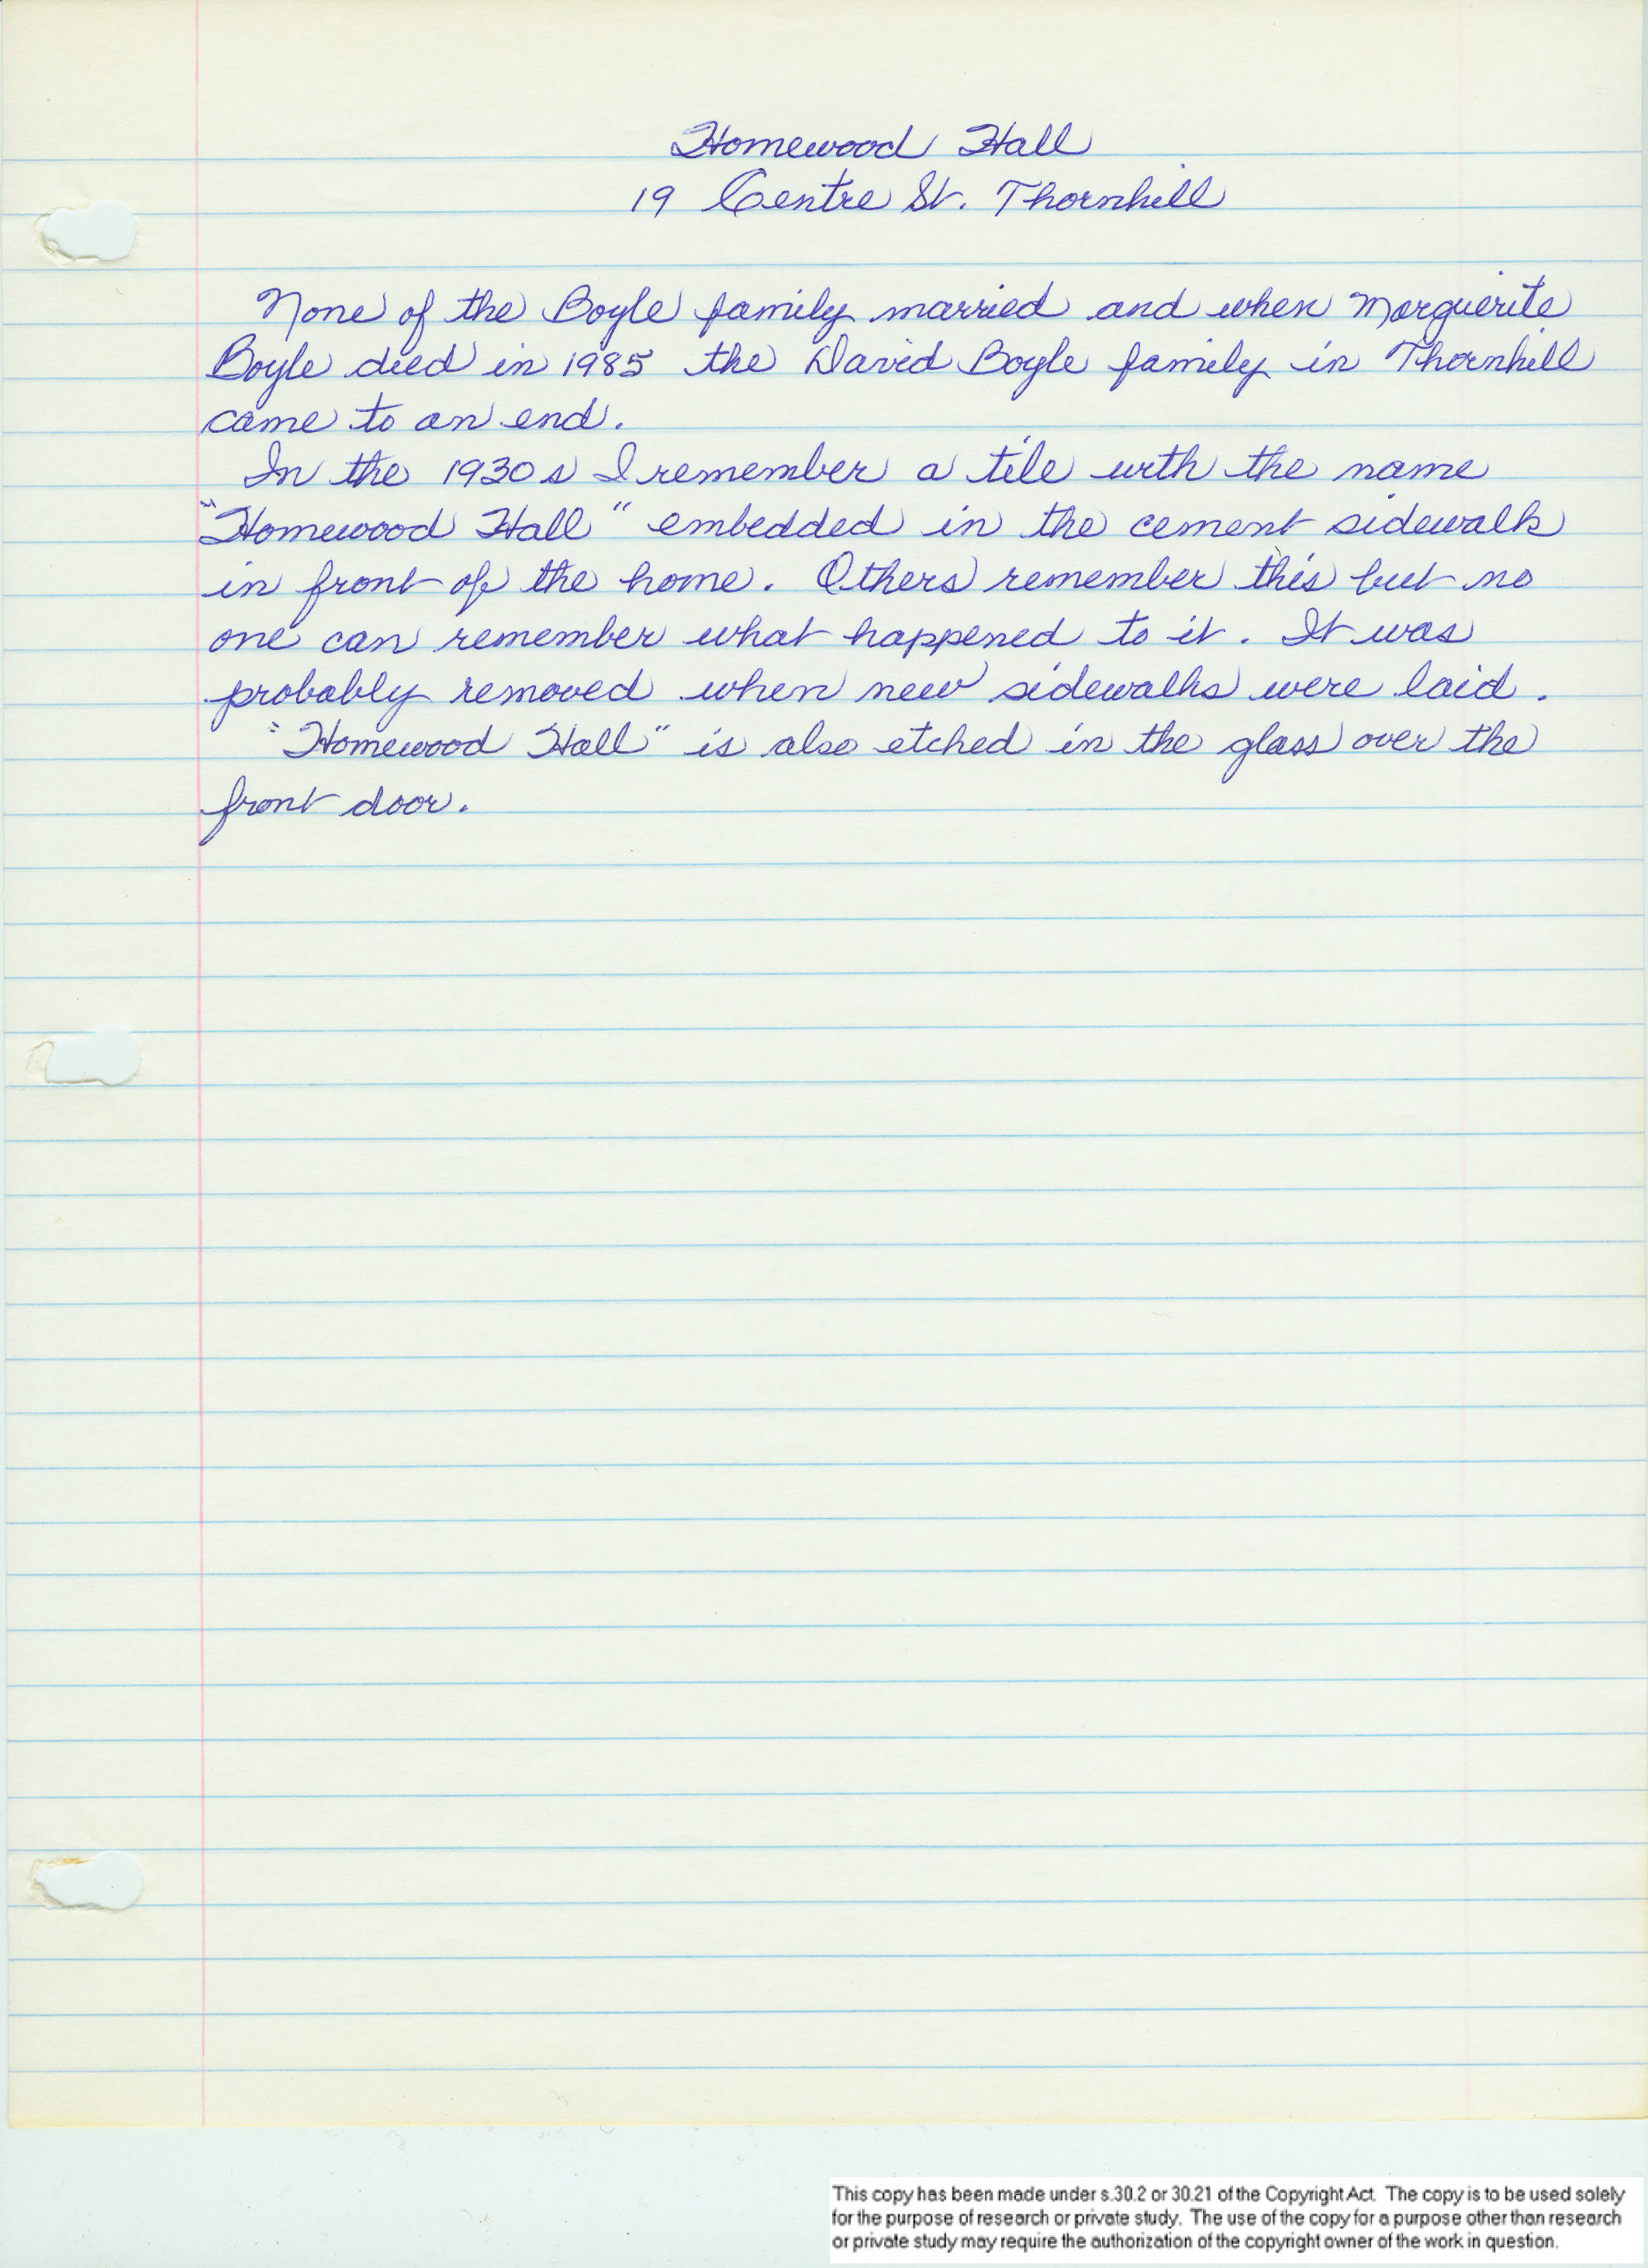 Homewood Hall
19 Centre St. Thornhill
None of the Boyle family married and when Marguerite
Boyle died in 1985 the David Boyle family in Thornhill
came to an end.
In the 1930s I remember a tile with the name
"Homewood Hall" embedded in the cement sidewalk
in front of the home. Others remember this but no
one can remember what happened to it. It was
probably removed when new sidewalks were laid.
"Homewood Hall" is also etched in the glass over the
front door.
This copy has been made under s.30.2 or 30.21 of the Copyright Act. The copy is to be used solely
for the purpose of research or private study. The use of the copy for a purpose other than research
or private study may require the authorization of the copyright owner of the work in question.